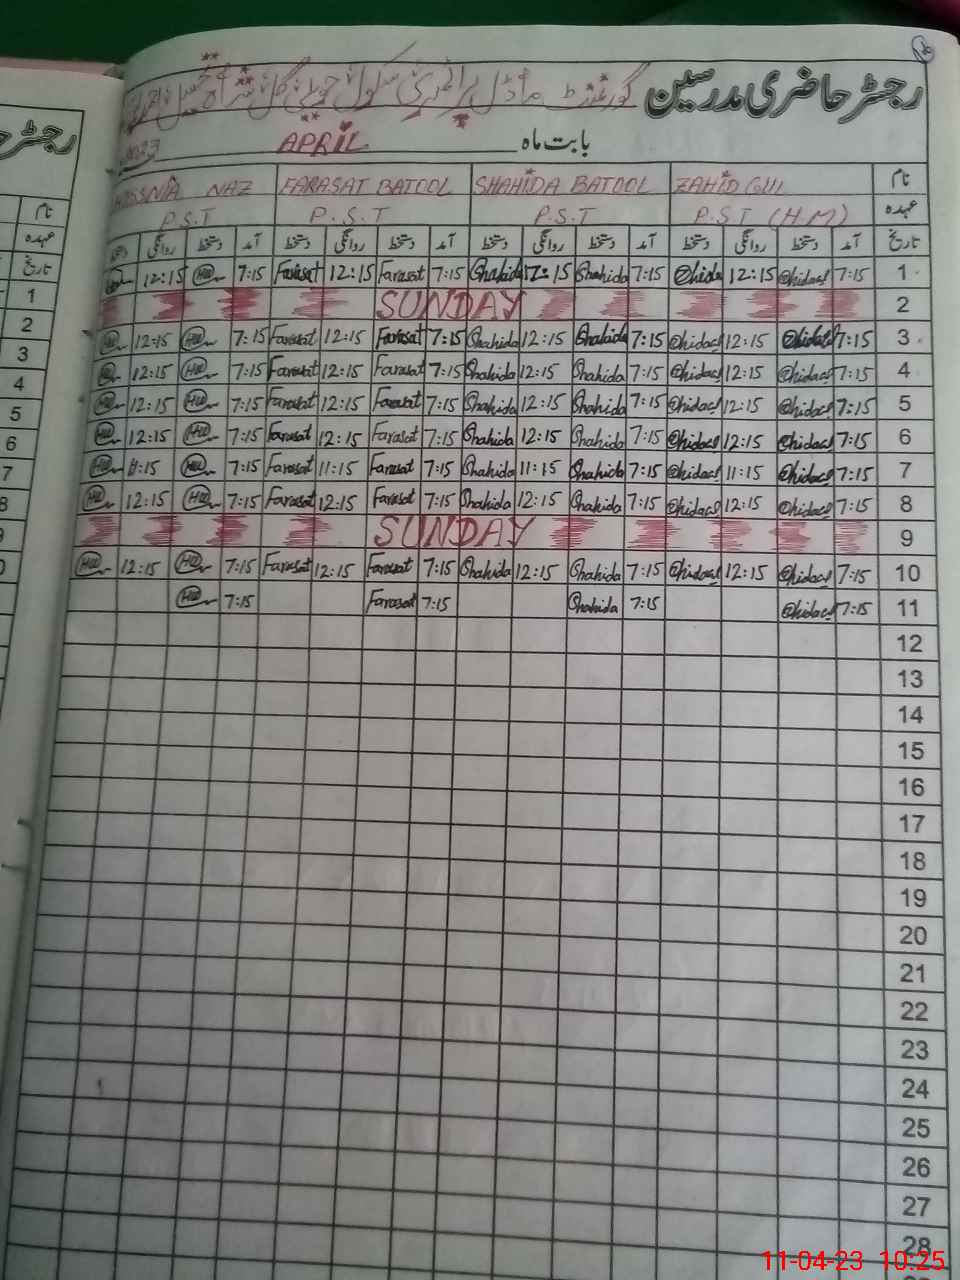 رجسٹر حاضری مدرسین
گورنمنٹ ماڈل پرائمری سکول
بابت ماہ APRIL 2023
نام ZAHID GUL SHAHIDA BATOOL FARASAT BATOOL HUSSNIA NAZ
عہدہ P.S.T (H.M) P.S.T P.S.T P.S.T
تاریخ آمد دستخط روانگی دستخط آمد دستخط روانگی دستخط آمد دستخط روانگی دستخط آمد دستخط روانگی دستخط
1 7:15 12:15 7:15 Shahida 12:15 Shahida 7:15 Farasat 12:15 Farasat 7:15 12:15
2 SUNDAY
3 7:15 12:15 7:15 Shahida 12:15 Shahida 7:15 Farasat 12:15 Farasat 7:15 12:15
4 7:15 12:15 7:15 Shahida 12:15 Shahida 7:15 Farasat 12:15 Farasat 7:15 12:15
5 7:15 12:15 7:15 Shahida 12:15 Shahida 7:15 Farasat 12:15 Farasat 7:15 12:15
6 7:15 12:15 7:15 Shahida 12:15 Shahida 7:15 Farasat 12:15 Farasat 7:15 12:15
7 7:15 11:15 7:15 Shahida 11:15 Shahida 7:15 Farasat 11:15 Farasat 7:15 11:15
8 7:15 12:15 7:15 Shahida 12:15 Shahida 7:15 Farasat 12:15 Farasat 7:15 12:15
9 SUNDAY
10 7:15 12:15 7:15 Shahida 12:15 Shahida 7:15 Farasat 12:15 Farasat 7:15 12:15
11 7:15 7:15 Shahida 7:15 Farasat 7:15
12
13
14
15
16
17
18
19
20
21
22
23
24
25
26
27
28
نام
عہدہ
تاریخ
1
2
3
4
5
6
7
8
11-04-23 10:25